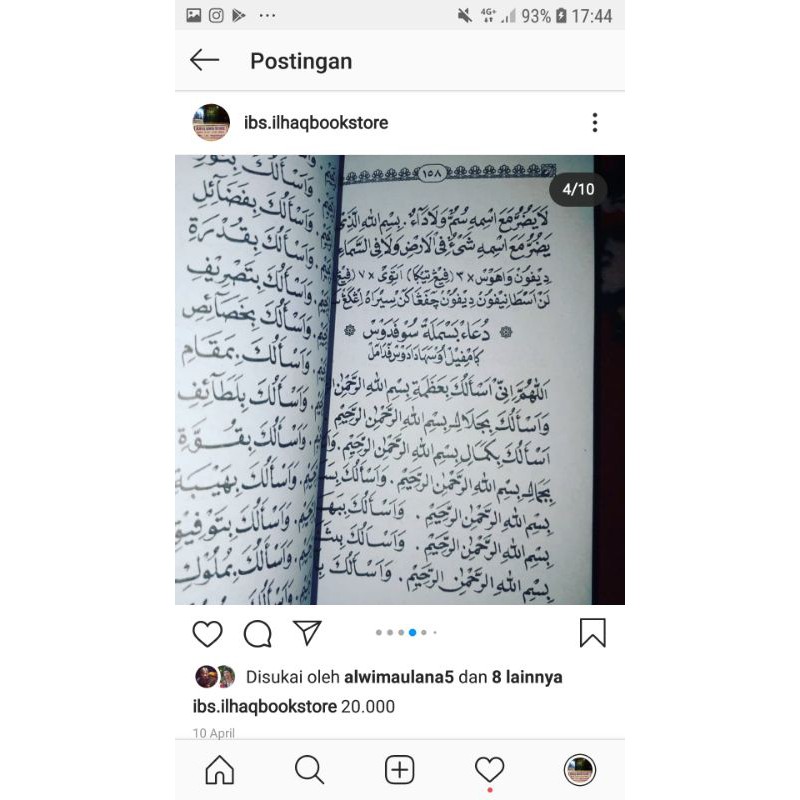 4G+ 93% 17:44
Postingan
ibs.ilhaqbookstore
4/10
١٥٨
لَا يَضُرُّ مَعَ اسْمِهِ سُمٌّ وَلَا دَاءٌ . بِسْمِ اللهِ الَّذِيْ
يَضُرُّ مَعَ اسْمِهِ شَيْءٌ فِى الْاَرْضِ وَلَا فِى السَّمَاءِ
دِيْفُوْنْ وَاهَوْسْ ×٣ (فِيڠْ تِيْكَا) اَنَوِيْ ×٧ (فِيڠْ
دُعَاءْ بَسْمَلَةْ سُوْفَدَوْسْ
اَللّٰهُمَّ اِنِّيْ اَسْأَلُكَ بِعَظَمَةِ بِسْمِ اللهِ الرَّحْمٰنِ
وَاَسْأَلُكَ بِجَلَالِ بِسْمِ اللهِ الرَّحْمٰنِ الرَّحِيْمِ
اَسْأَلُكَ بِكَمَالِ بِسْمِ اللهِ الرَّحْمٰنِ الرَّحِيْمِ . وَا
بِجَمَالِ بِسْمِ اللهِ الرَّحْمٰنِ الرَّحِيْمِ . وَاَسْأَلُكَ
بِسْمِ اللهِ الرَّحْمٰنِ الرَّحِيْمِ . وَاَسْأَلُكَ
بِسْمِ اللهِ الرَّحْمٰنِ الرَّحِيْمِ . وَاَسْأَلُكَ
بِسْمِ اللهِ الرَّحْمٰنِ الرَّحِيْمِ . وَاَسْأَلُكَ
وَاَسْأَلُكَ بِفَضَآئِلِ
وَاَسْأَلُكَ بِقُدْرَةِ
وَاَسْأَلُكَ بِتَصْرِيْفِ
وَاَسْأَلُكَ بِخَصَآئِصِ
وَاَسْأَلُكَ بِمَقَامِ
وَاَسْأَلُكَ بِلَطَآئِفِ
وَاَسْأَلُكَ بِقُوَّةِ
وَاَسْأَلُكَ بِهَيْبَةِ
وَاَسْأَلُكَ بِتَوْفِيْقِ
وَاَسْأَلُكَ بِمُلُوْكِ
Disukai oleh alwimaulana5 dan 8 lainnya
ibs.ilhaqbookstore 20.000
10 April